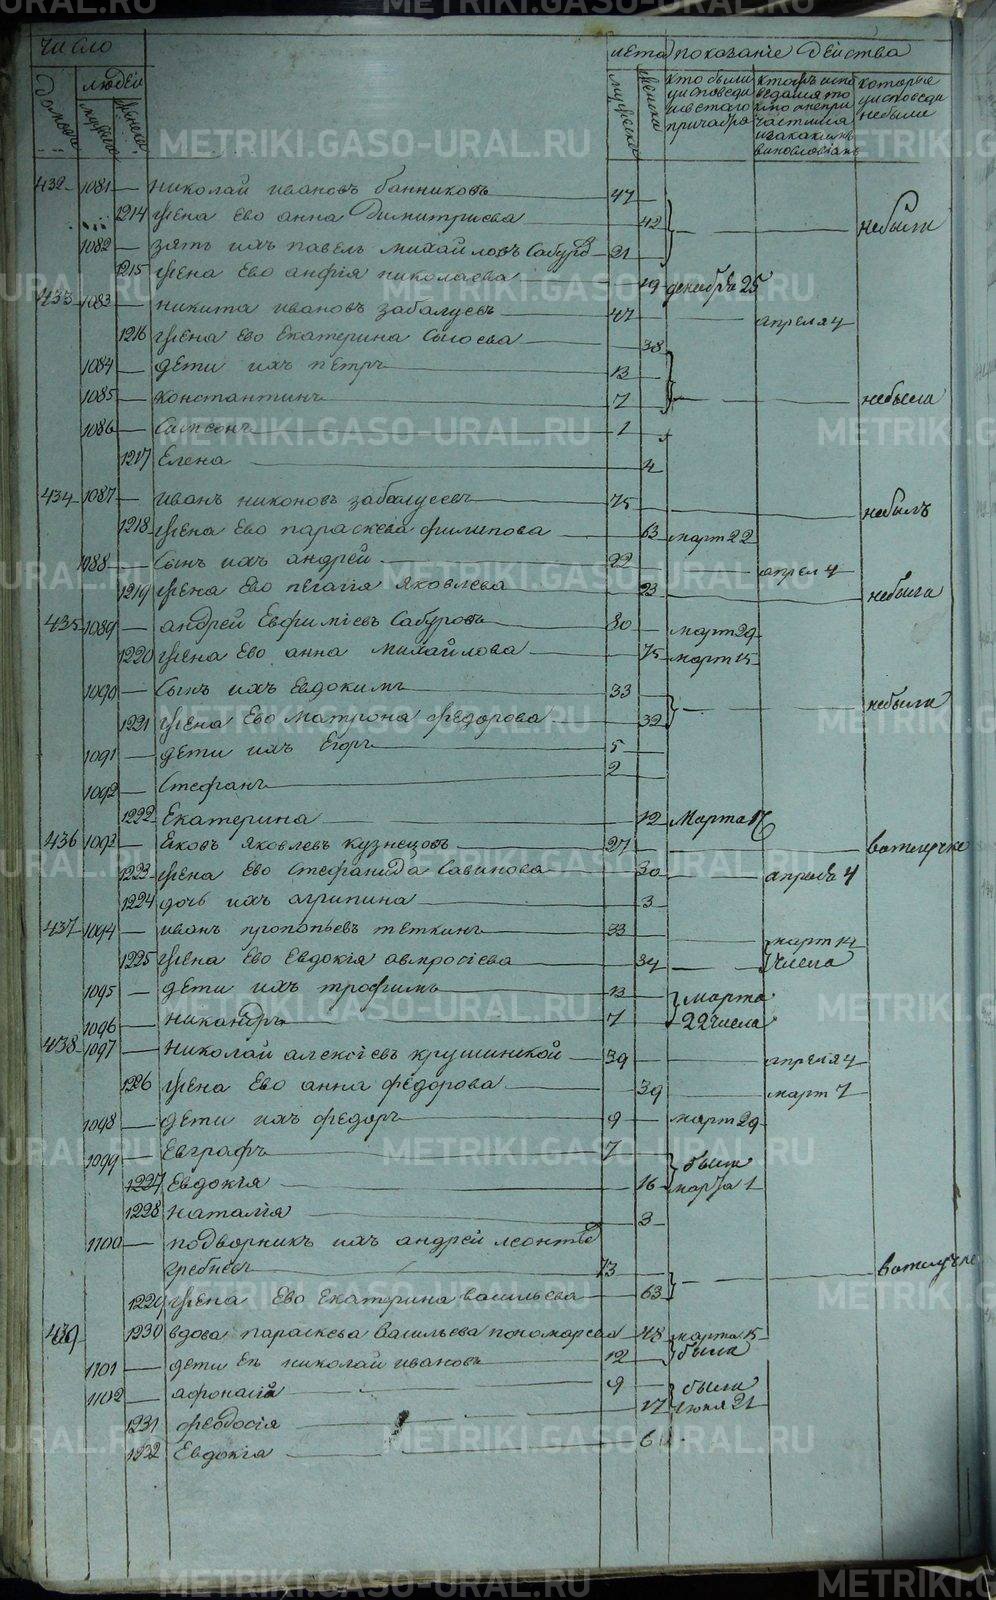 число лета показаніе действа
домовъ людей мужеска женска мужеска женска кто были у исповеди и святаго причастия которые у исповеди небыли
432 1081 николай ивановъ банниковъ 47
1214 жена ево анна димитриева 42 небыли
1082 зять ихъ павелъ михайловъ сабуров 21
1215 жена ево анфія николаева 19 декабрь 25
433 1083 никита ивановъ забалуевъ 47 апреля 4
1216 жена ево екатерина сысоева 38
1084 дети ихъ петръ 13
1085 константинъ 7 небыла
1086 сампсонъ 1
1217 елена 4
434 1087 иванъ никоновъ забалуевъ 75 небылъ
1218 жена ево параскева филипова 63 март 22
1088 сынъ ихъ андрей 22 апрел 4
1219 жена ево пелагія яковлева 23 небыла
435 1089 андрей евфиміевъ сабуровъ 80 март 29
1220 жена ево анна михайлова 75 март 15
1090 сынъ ихъ евдокимъ 33 небыли
1221 жена ево матрона федорова 32
1091 дети ихъ егоръ 5
1092 стефанъ 2
1222 екатерина 12 марта 17
436 1093 яковъ яковлевъ кузнецовъ 27 вотлучке
1223 жена ево стефанида савинова 30 апреля 4
1224 дочь ихъ агрипина 3
437 1094 иванъ прокопьевъ теткинъ 33 март 14
1225 жена ево евдокія амвросіева 34 числа
1095 дети ихъ трофимъ 13 марта
1096 никандръ 7 22 числа
438 1097 николай алексіевъ крушинской 39 апреля 4
1226 жена ево анна федорова 39 март 7
1098 дети ихъ федоръ 9 март 29
1099 евграфъ 7 были
1227 евдокія 16 марта 1
1228 наталія 3
1100 подворникъ ихъ андрей леонтьев
гребневъ 73 вотлучке
1229 жена ево екатерина васильева 63
439 1230 вдова параскева васильева пономарева 48 марта 15
1101 дети ея николай ивановъ 12 была
1102 афонасій 9 были
1231 феодосія 17 июня 21
1232 евдокія 6
METRIKI.GASO-URAL.RU